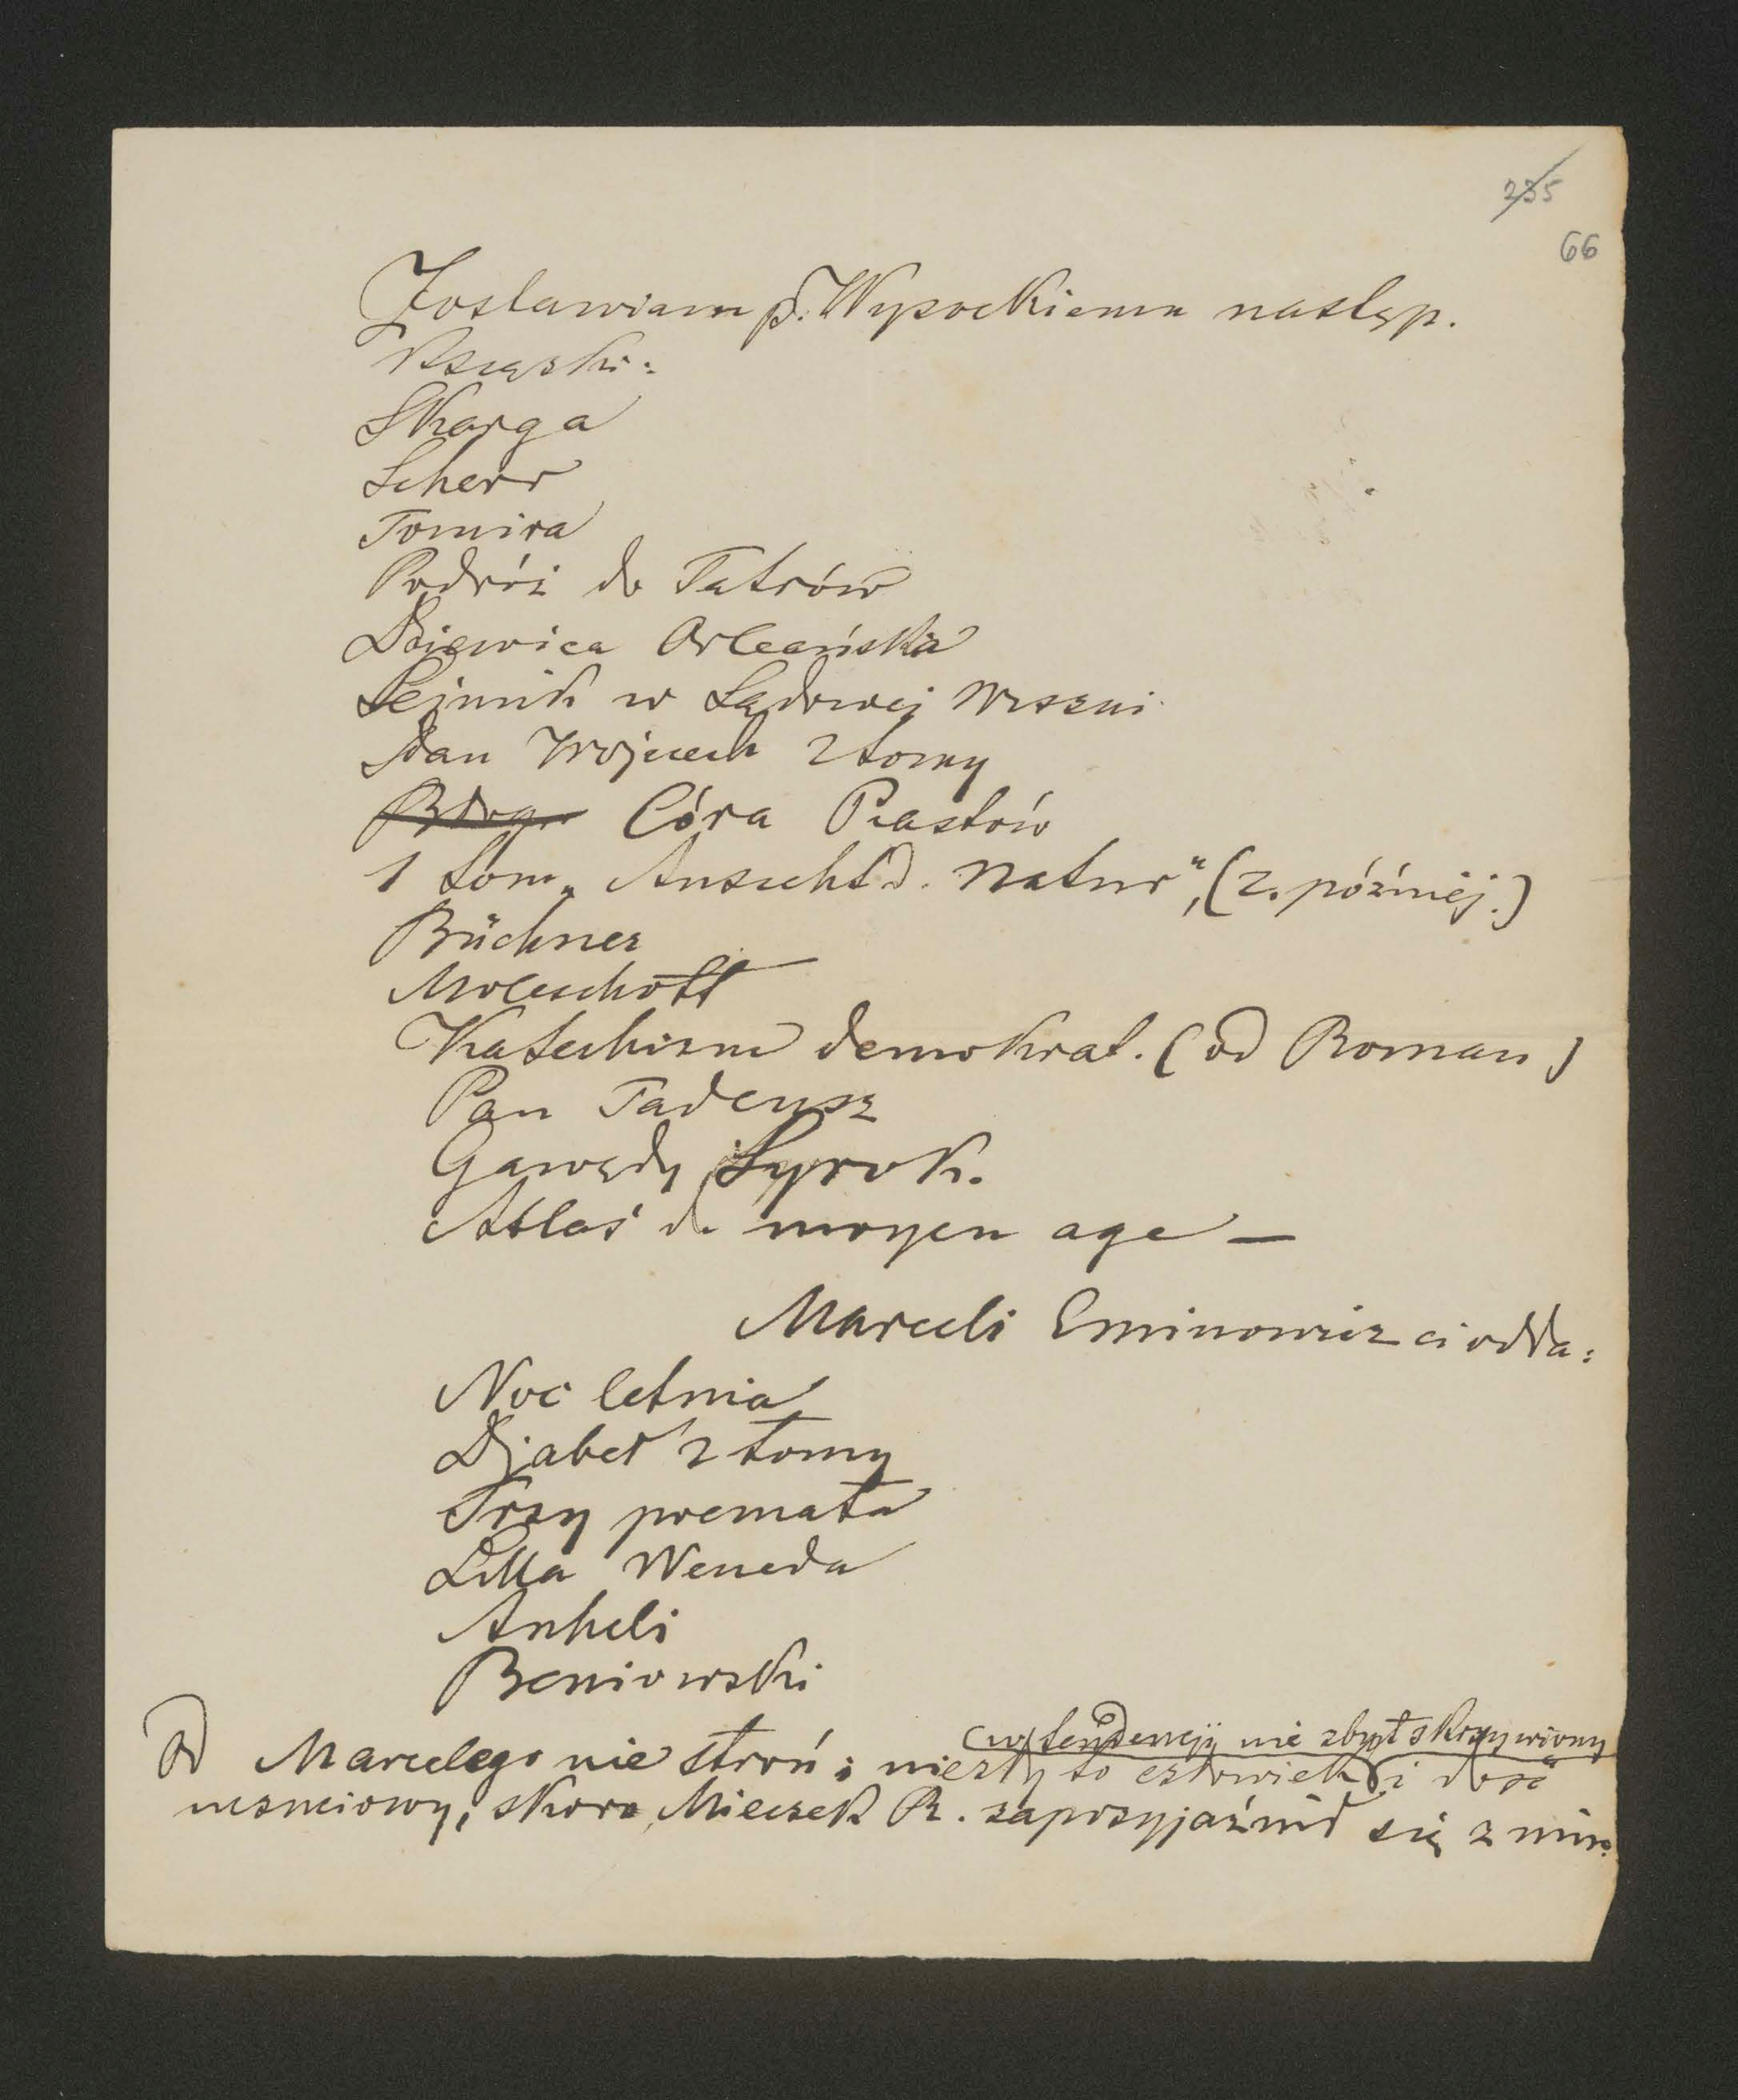 235
66
Zostawiam p. Wysockiemu następ.
Książki:
Skarga
Scherr
Tomira
Podróż do Tatrów
Dziewica Orleańska
Sejmik w Sądowej Wiszni
Pan Wojciech 2 tomy
Córa Piastów
1 tom „Ansicht d. Natur", (2. późniéj.)
Büchner
Moleschott
Katechizm demokrat. (od Roman)
Pan Tadeusz
Gawędy Syrok.
Atlas du moyen age —
Marceli Eminowicz ci odda:
Noc letnia
Djabeł 2 tomy
Trzy poemata
Lilla Weneda
Anheli
Beniowski
(w tendencyji nie zbyt skrzywiony
Od Marcelego nie stroń; niezły to człowiek i dość
uczuciowy, skoro Mieczek R. zaprzyjaźnił się z nim.